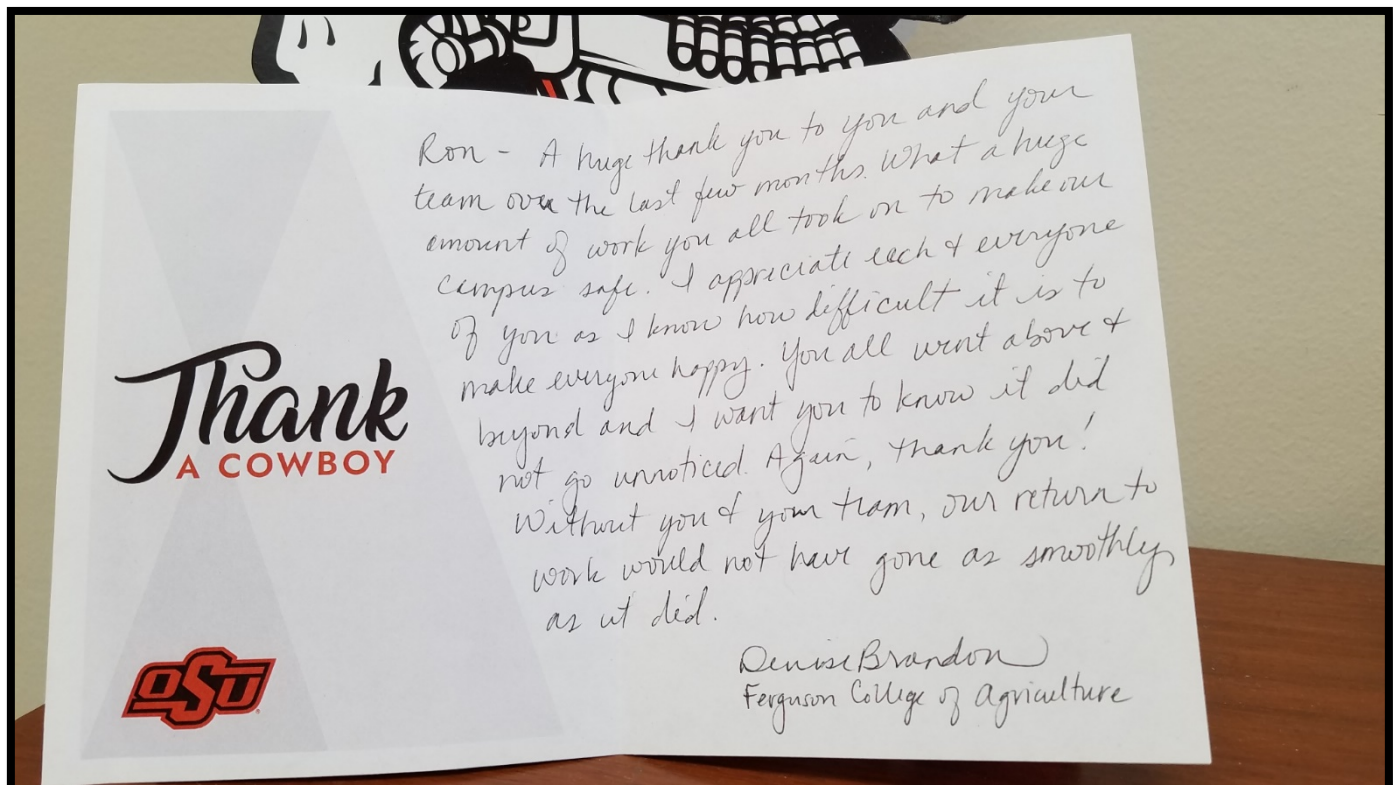 Thank
A COWBOY
OSU
Ron - A huge thank you to you and your
team over the last few months. What a huge
amount of work you all took on to make our
campus safe. I appreciate each & everyone
of you as I know how difficult it is to
make everyone happy. You all went above &
beyond and I want you to know it did
not go unnoticed. Again, thank you!
Without you & your team, our return to
work would not have gone as smoothly
as it did.
Denise Brandon
Ferguson College of Agriculture